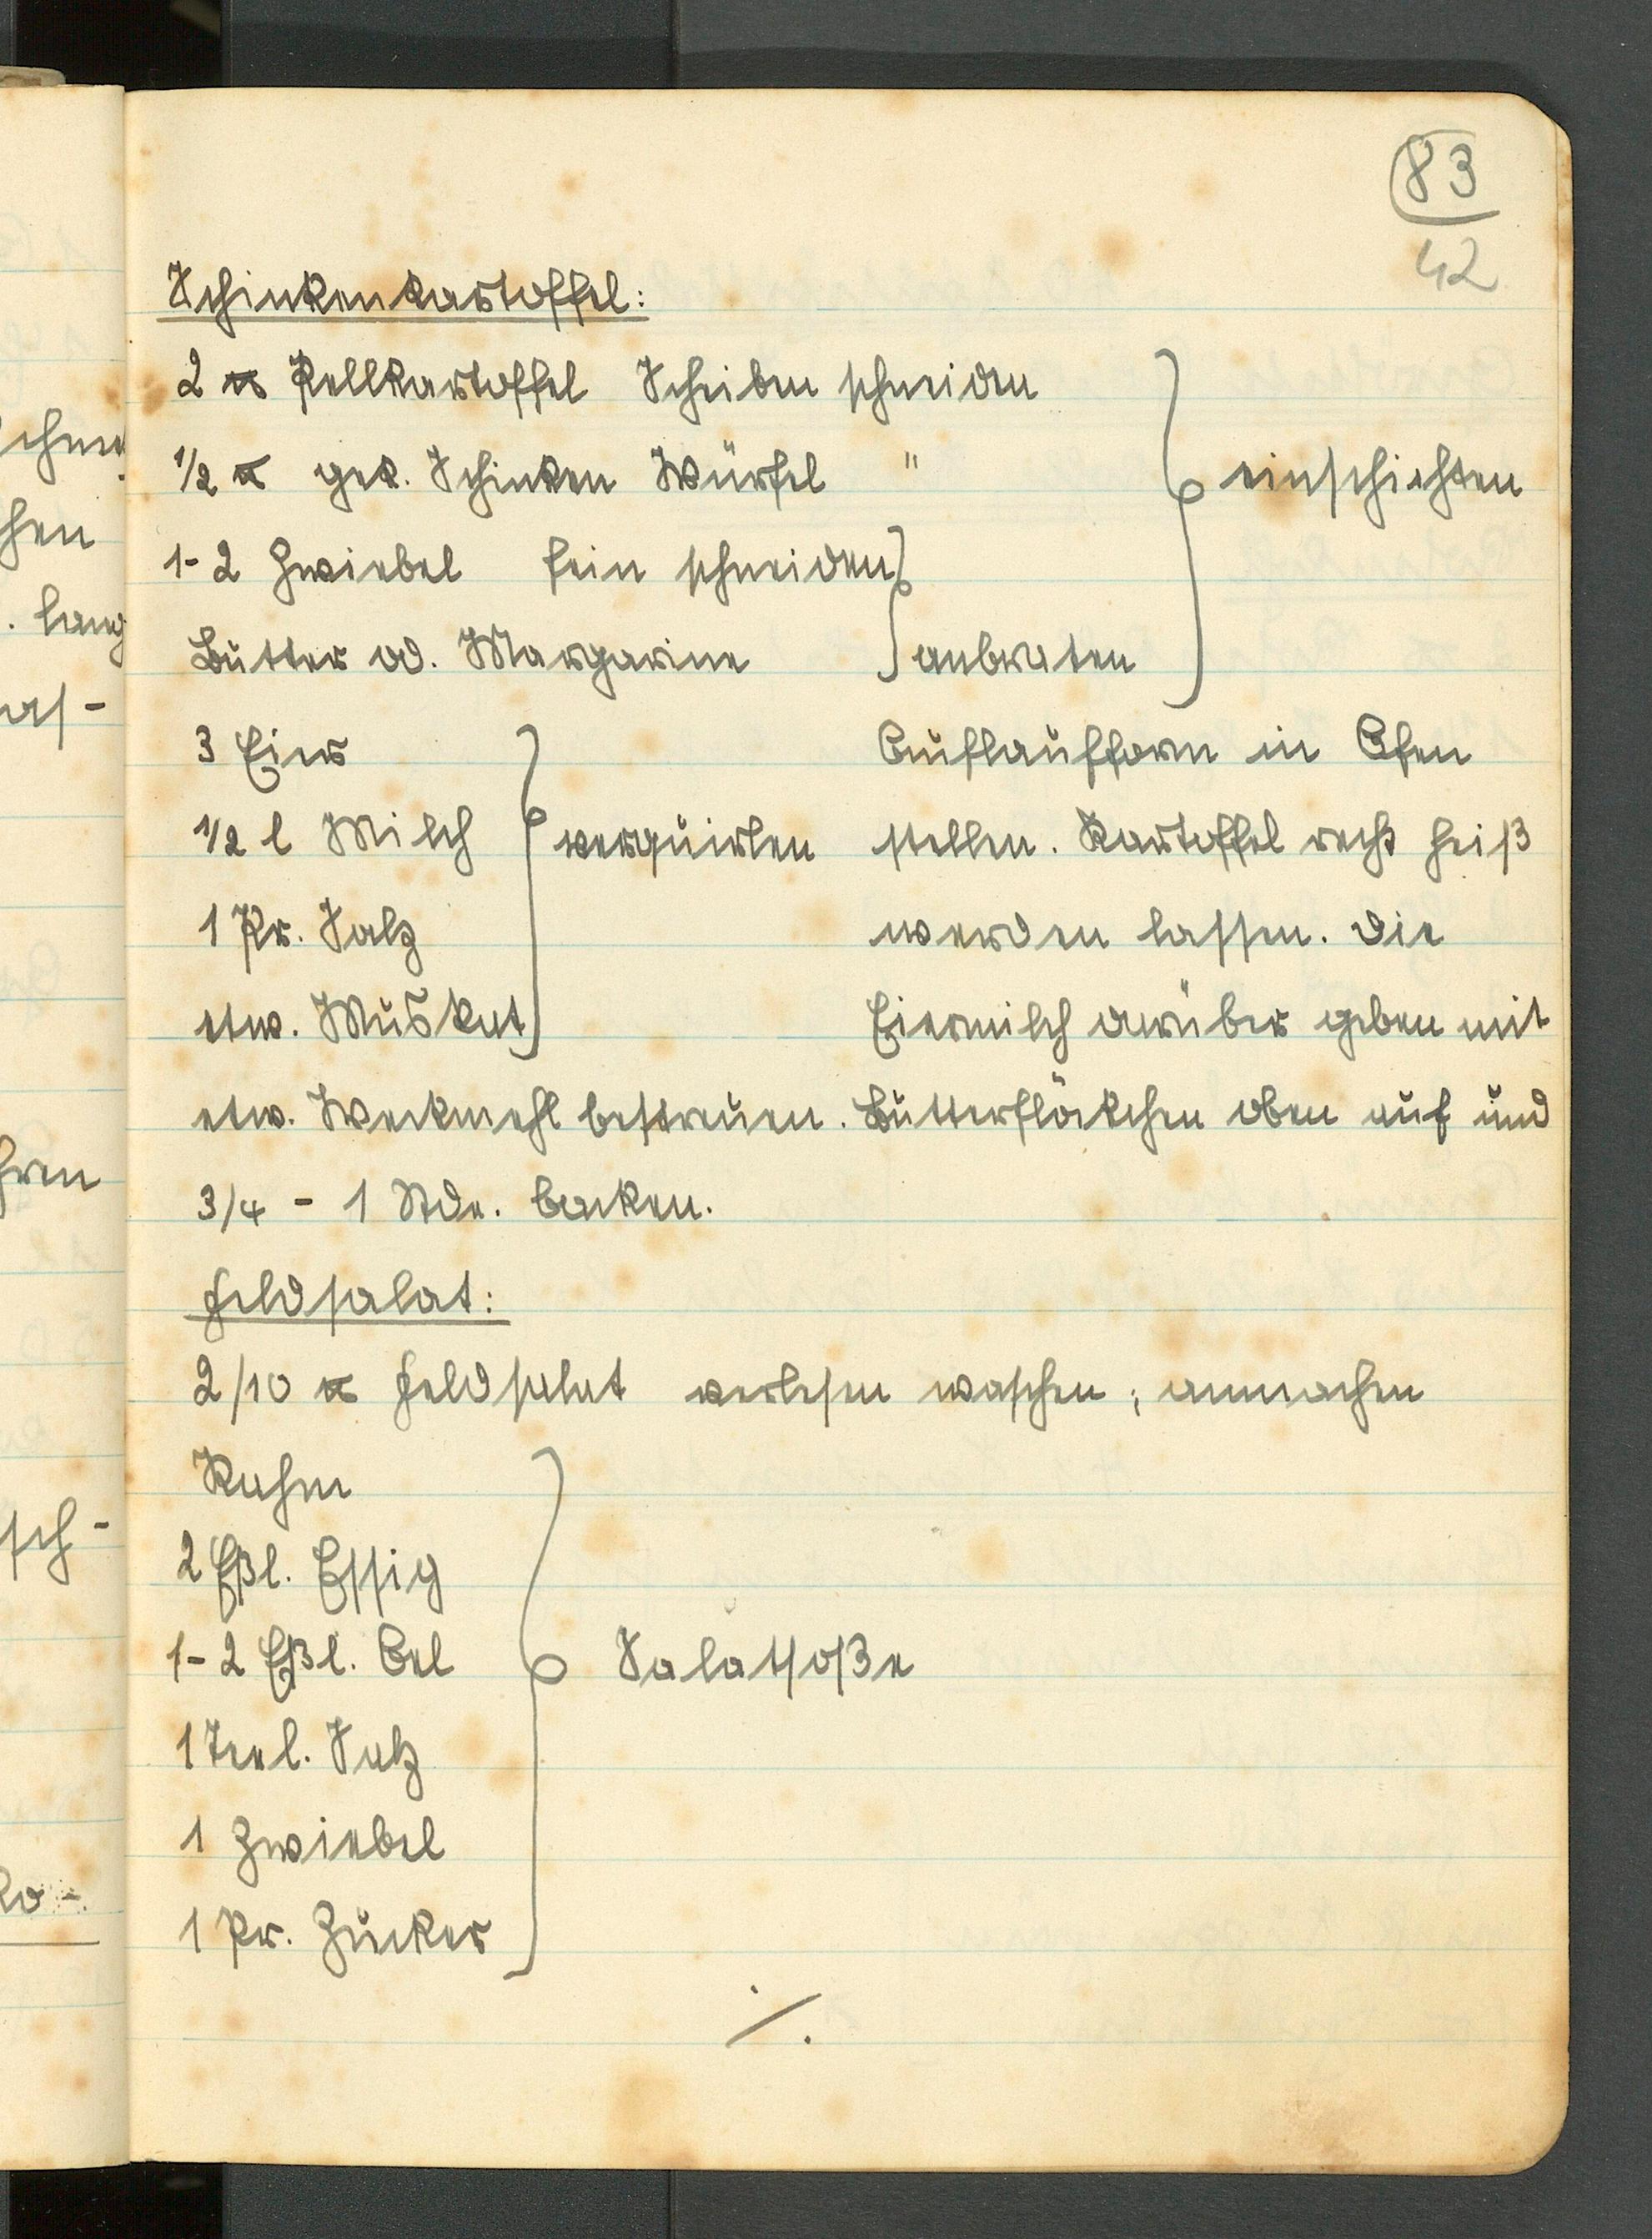 83
42
Schinkenkartoffel:
2 ℔ Pellkartoffel Scheiben schneiden
1/2 ℔ gek. Schinken Würfel " einschichten
1-2 Zwiebel fein schneiden
Butter od. Margarine anbraten
3 Eier Auflaufform in Ofen
1/2 l Milch verquirlen stellen. Kartoffel recht heiß
1 Pr. Salz werden lassen. Die
etw. Muskat Eiermilch darüber geben mit
etw. Weckmehl bestreuen. Butterflöckchen oben auf und
3/4 - 1 Stde. backen.
Feldsalat:
2/10 ℔ Feldsalat verlesen waschen; anmachen
Rahm
2 Eßl. Essig
1-2 Eßl. Oel Salatsoße
1 Teel. Salz
1 Zwiebel
1 Pr. Zucker
./.
chen
hen
. lang
as-
hren
sch-